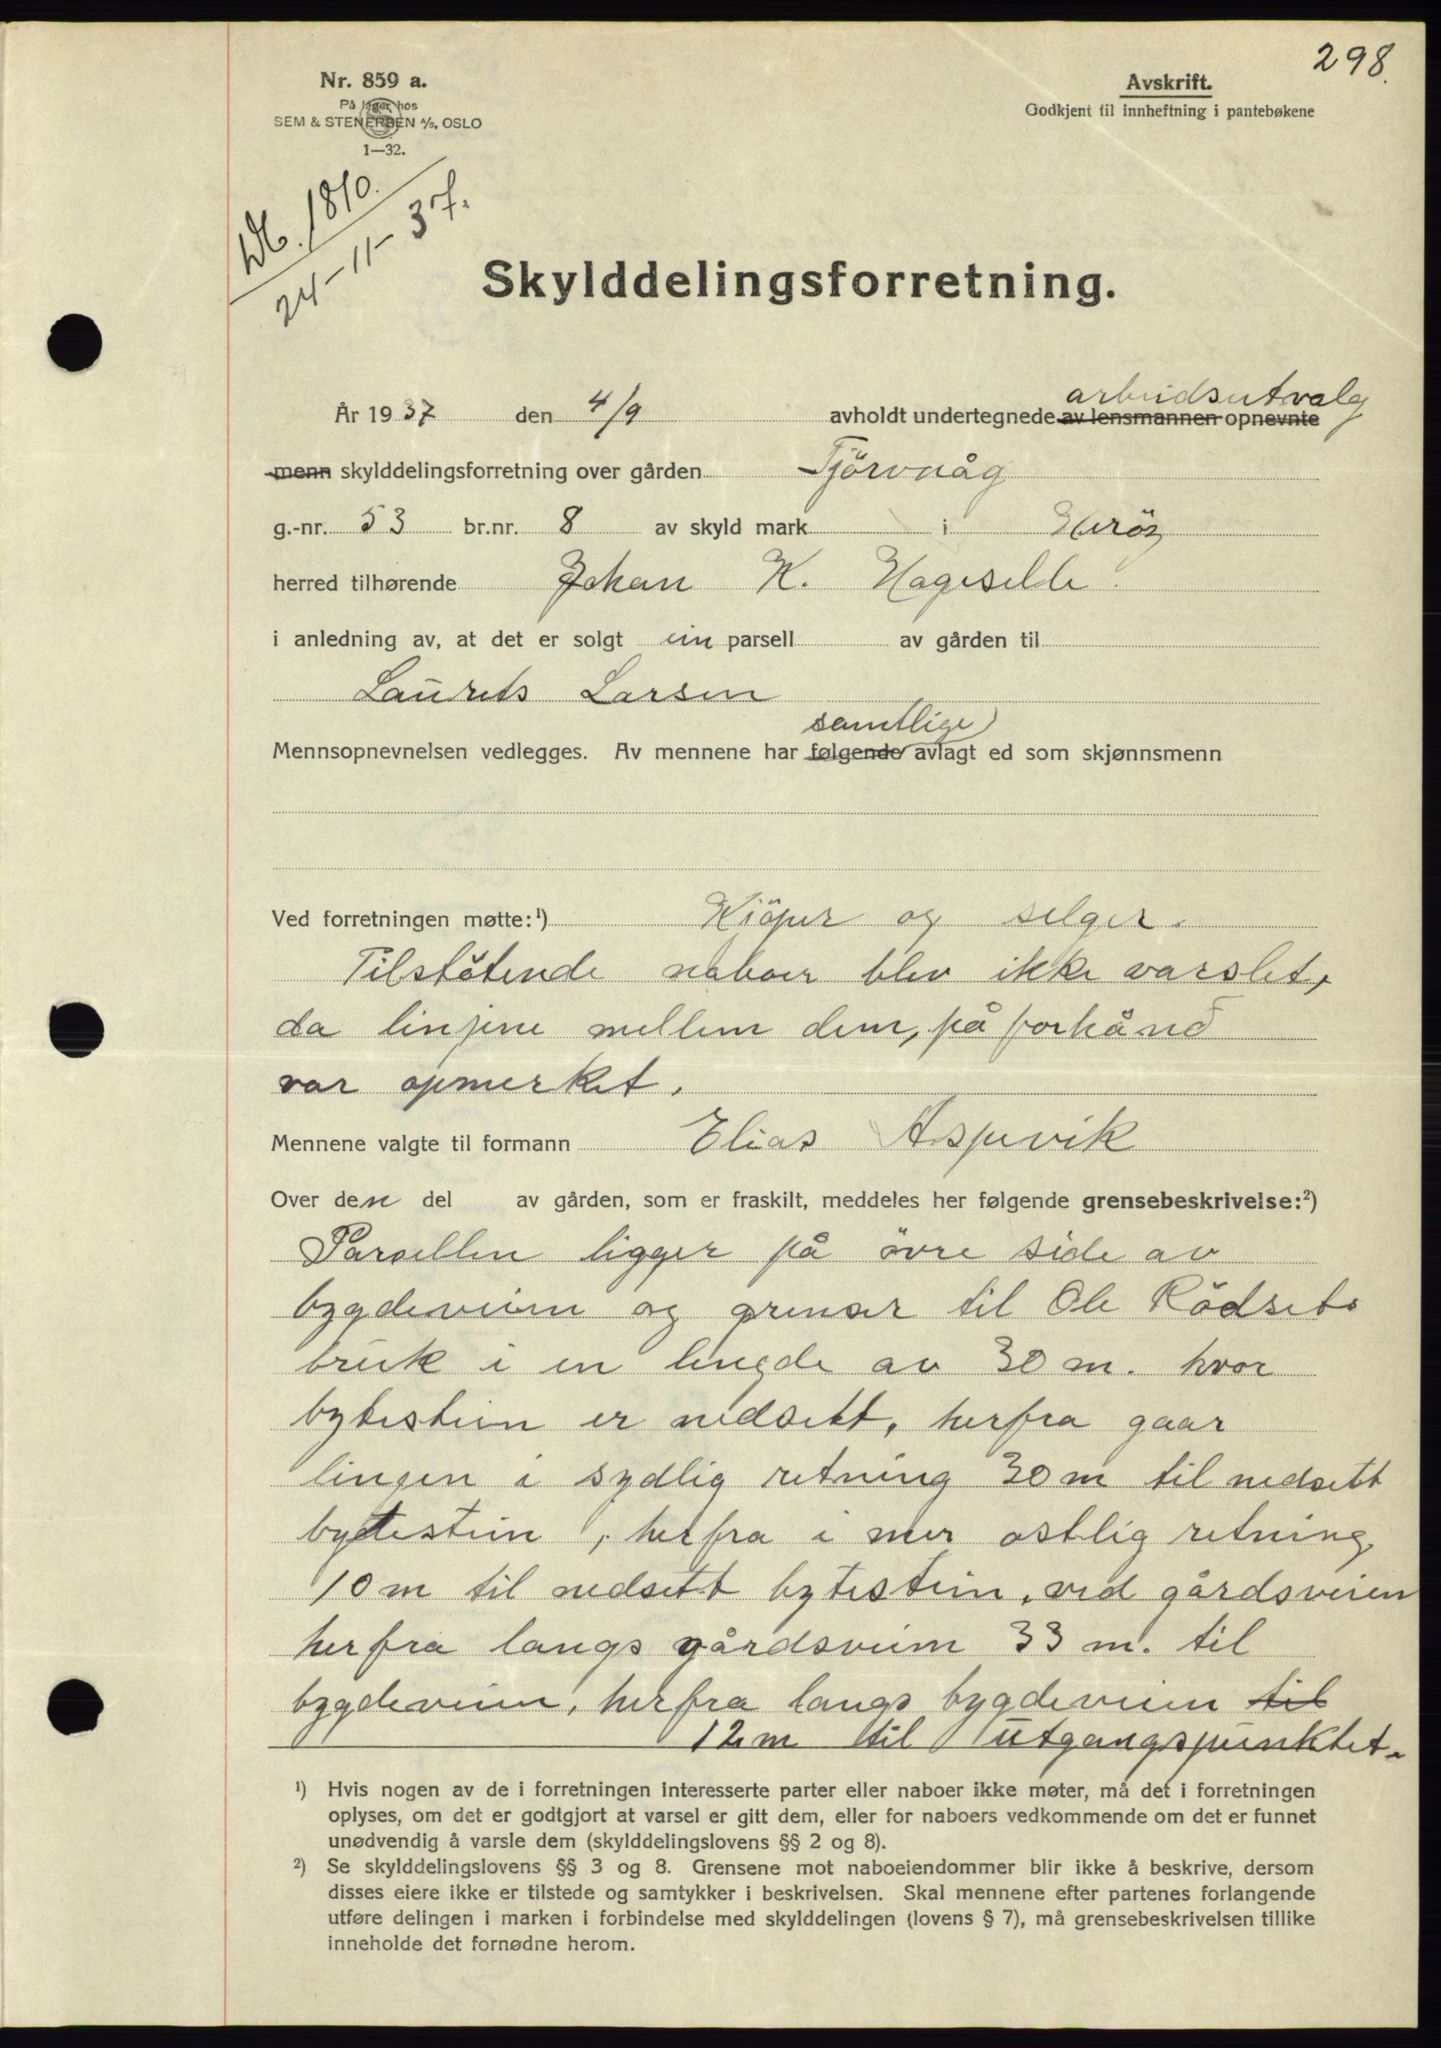 298.
Nr. 859 a.
På lager hos
SEM & STENERSEN A/S, OSLO
1—32.
Avskrift.
Godkjent til innheftning i pantebøkene
Db. 1810.
24-11-37.
Skylddelingsforretning.
arbeidsutvalg
År 1937 den 4/9 avholdt undertegnede av lensmannen opnevnte
menn skylddelingsforretning over gården Tjörvåg
g.-nr. 53 br.nr. 8 av skyld mark i Heröy
herred tilhørende Johan K. Hageselle
i anledning av, at det er solgt ein parsell av gården til
Laurits Larsen
samtlige
Mennsopnevnelsen vedlegges. Av mennene har følgende avlagt ed som skjønnsmenn
Ved forretningen møtte:¹) Kjöper og selger.
Tilstötende naboer blev ikke varslet,
da linjene mellem dem, på forhånd
var opmerket.
Mennene valgte til formann Elias Aspevik
Over den del av gården, som er fraskilt, meddeles her følgende grensebeskrivelse:²)
Parsellen ligger på övre side av
bygdeveien og grenser til Ole Rödsets
bruk i en lengde av 30 m. hvor
bytestein er nedsett, herfra gaar
lingen i sydlig retning 30 m til nedsett
bytestein, herfra i mer ostlig retning
10 m til nedsett bytestein, ved gårdsveien
herfra langs gårdsveien 33 m. til
bygdeveien, herfra langs bygdeveien til
12 m til utgangspunktet.
¹) Hvis nogen av de i forretningen interesserte parter eller naboer ikke møter, må det i forretningen
oplyses, om det er godtgjort at varsel er gitt dem, eller for naboers vedkommende om det er funnet
unødvendig å varsle dem (skylddelingslovens §§ 2 og 8).
²) Se skylddelingslovens §§ 3 og 8. Grensene mot naboeiendommer blir ikke å beskrive, dersom
disses eiere ikke er tilstede og samtykker i beskrivelsen. Skal mennene efter partenes forlangende
utføre delingen i marken i forbindelse med skylddelingen (lovens § 7), må grensebeskrivelsen tillike
inneholde det fornødne herom.